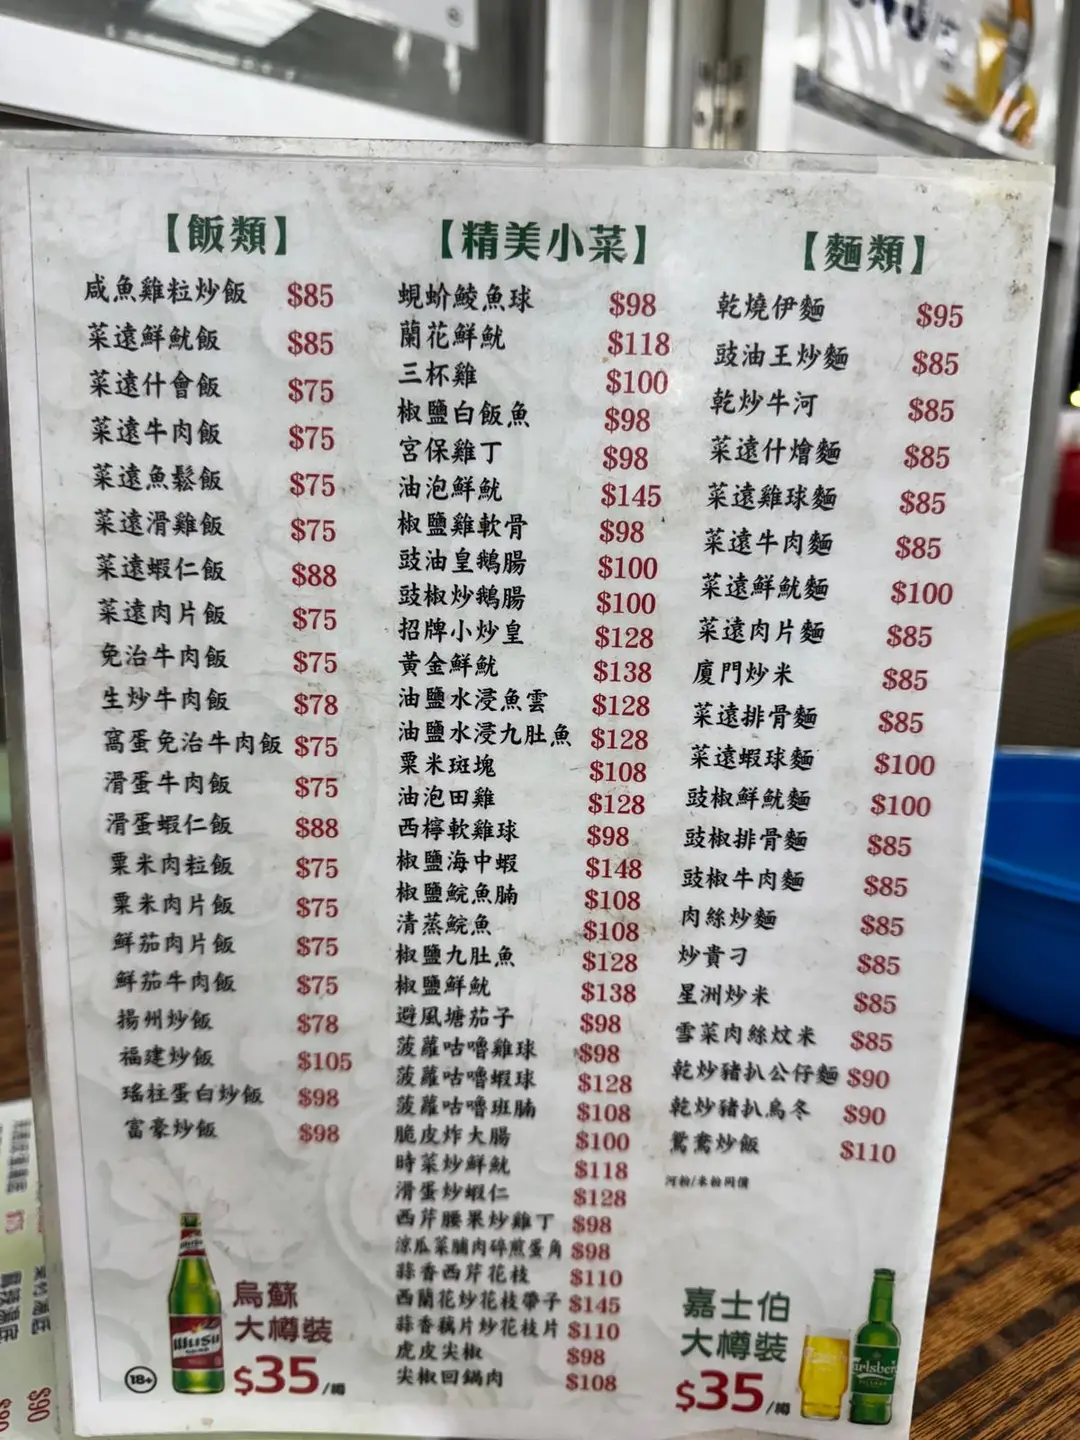 【飯類】
咸魚雞粒炒飯 $85
菜遠鮮魷飯 $85
菜遠什會飯 $75
菜遠牛肉飯 $75
菜遠魚鬆飯 $75
菜遠滑雞飯 $75
菜遠蝦仁飯 $88
菜遠肉片飯 $75
免治牛肉飯 $75
生炒牛肉飯 $78
窩蛋免治牛肉飯 $75
滑蛋牛肉飯 $75
滑蛋蝦仁飯 $88
粟米肉粒飯 $75
粟米肉片飯 $75
鮮茄肉片飯 $75
鮮茄牛肉飯 $75
揚州炒飯 $78
福建炒飯 $105
瑤柱蛋白炒飯 $98
富豪炒飯 $98
烏蘇
大樽裝
$35/樽
18+
WUSU
【精美小菜】
蜆蚧鯪魚球 $98
蘭花鮮魷 $118
三杯雞 $100
椒鹽白飯魚 $98
宮保雞丁 $98
油泡鮮魷 $145
椒鹽雞軟骨 $98
豉油皇鵝腸 $100
豉椒炒鵝腸 $100
招牌小炒皇 $128
黃金鮮魷 $138
油鹽水浸魚雲 $128
油鹽水浸九肚魚 $128
粟米斑塊 $108
油泡田雞 $128
西檸軟雞球 $98
椒鹽海中蝦 $148
椒鹽鯇魚腩 $108
清蒸鯇魚 $108
椒鹽九肚魚 $128
椒鹽鮮魷 $138
避風塘茄子 $98
菠蘿咕嚕雞球 $98
菠蘿咕嚕蝦球 $128
菠蘿咕嚕班腩 $108
脆皮炸大腸 $100
時菜炒鮮魷 $118
滑蛋炒蝦仁 $128
西芹腰果炒雞丁 $98
涼瓜菜脯肉碎煎蛋角 $98
蒜香西芹花枝 $110
西蘭花炒花枝帶子 $145
蒜香藕片炒花枝片 $110
虎皮尖椒 $98
尖椒回鍋肉 $108
【麵類】
乾燒伊麵 $95
豉油王炒麵 $85
乾炒牛河 $85
菜遠什燴麵 $85
菜遠雞球麵 $85
菜遠牛肉麵 $85
菜遠鮮魷麵 $100
菜遠肉片麵 $85
廈門炒米 $85
菜遠排骨麵 $85
菜遠蝦球麵 $100
豉椒鮮魷麵 $100
豉椒排骨麵 $85
豉椒牛肉麵 $85
肉絲炒麵 $85
炒貴刁 $85
星洲炒米 $85
雪菜肉絲炆米 $85
乾炒豬扒公仔麵 $90
乾炒豬扒烏冬 $90
鴛鴦炒飯 $110
河粉/米粉同價
嘉士伯
大樽裝
$35/樽
Carlsberg
$90